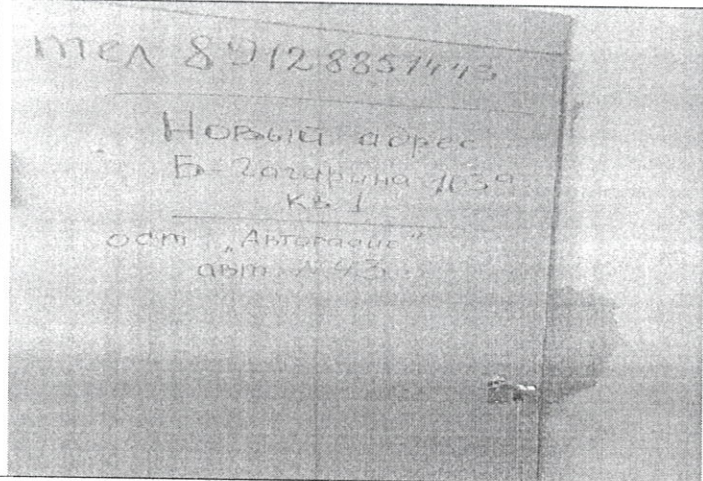 тел 89128857443
Новый адрес
Б-Гагарина 103а
кв 1
ост „Автор
авт N 43